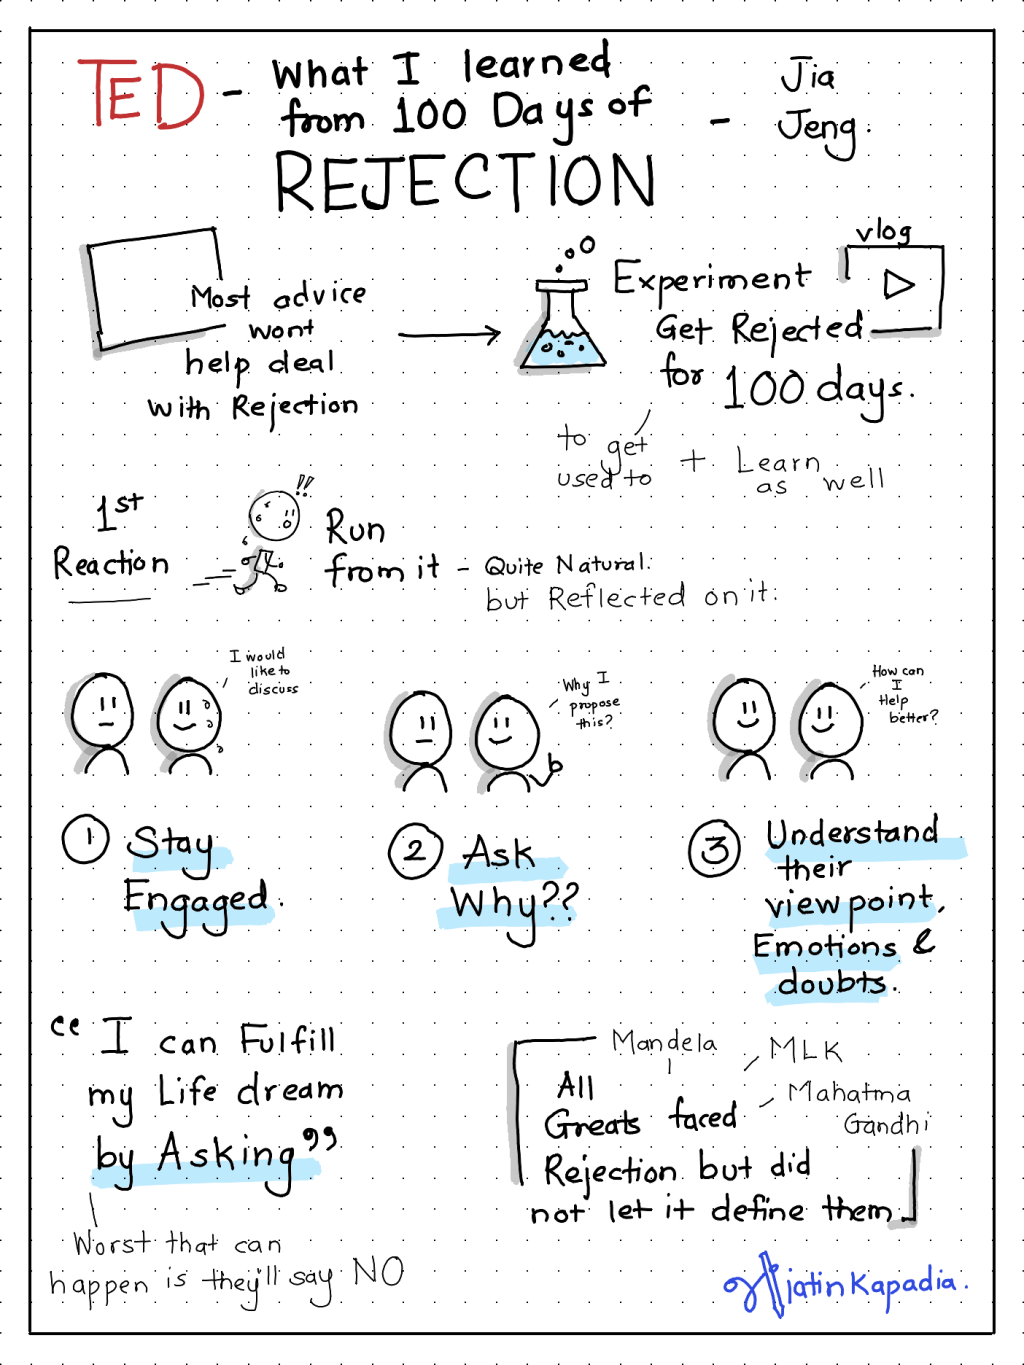 TED - What I learned
from 100 Days of
REJECTION
- Jia
Jeng.
Most advice
wont
help deal
with Rejection
vlog
Experiment
Get Rejected
for 100 days.
to get
used to
+ Learn
as well
1st
Reaction
!!
Run
from it - Quite Natural.
but Reflected on it.
I would
like to
discuss
Why I
propose
this?
How can
I
Help
better?
1 Stay
Engaged.
2 Ask
Why??
3 Understand
their
view point,
Emotions &
doubts.
"I can Fulfill
my Life dream
by Asking"
Worst that can
happen is they'll say NO
Mandela
MLK
Mahatma
Gandhi
All
Greats faced
Rejection but did
not let it define them
jatin Kapadia.